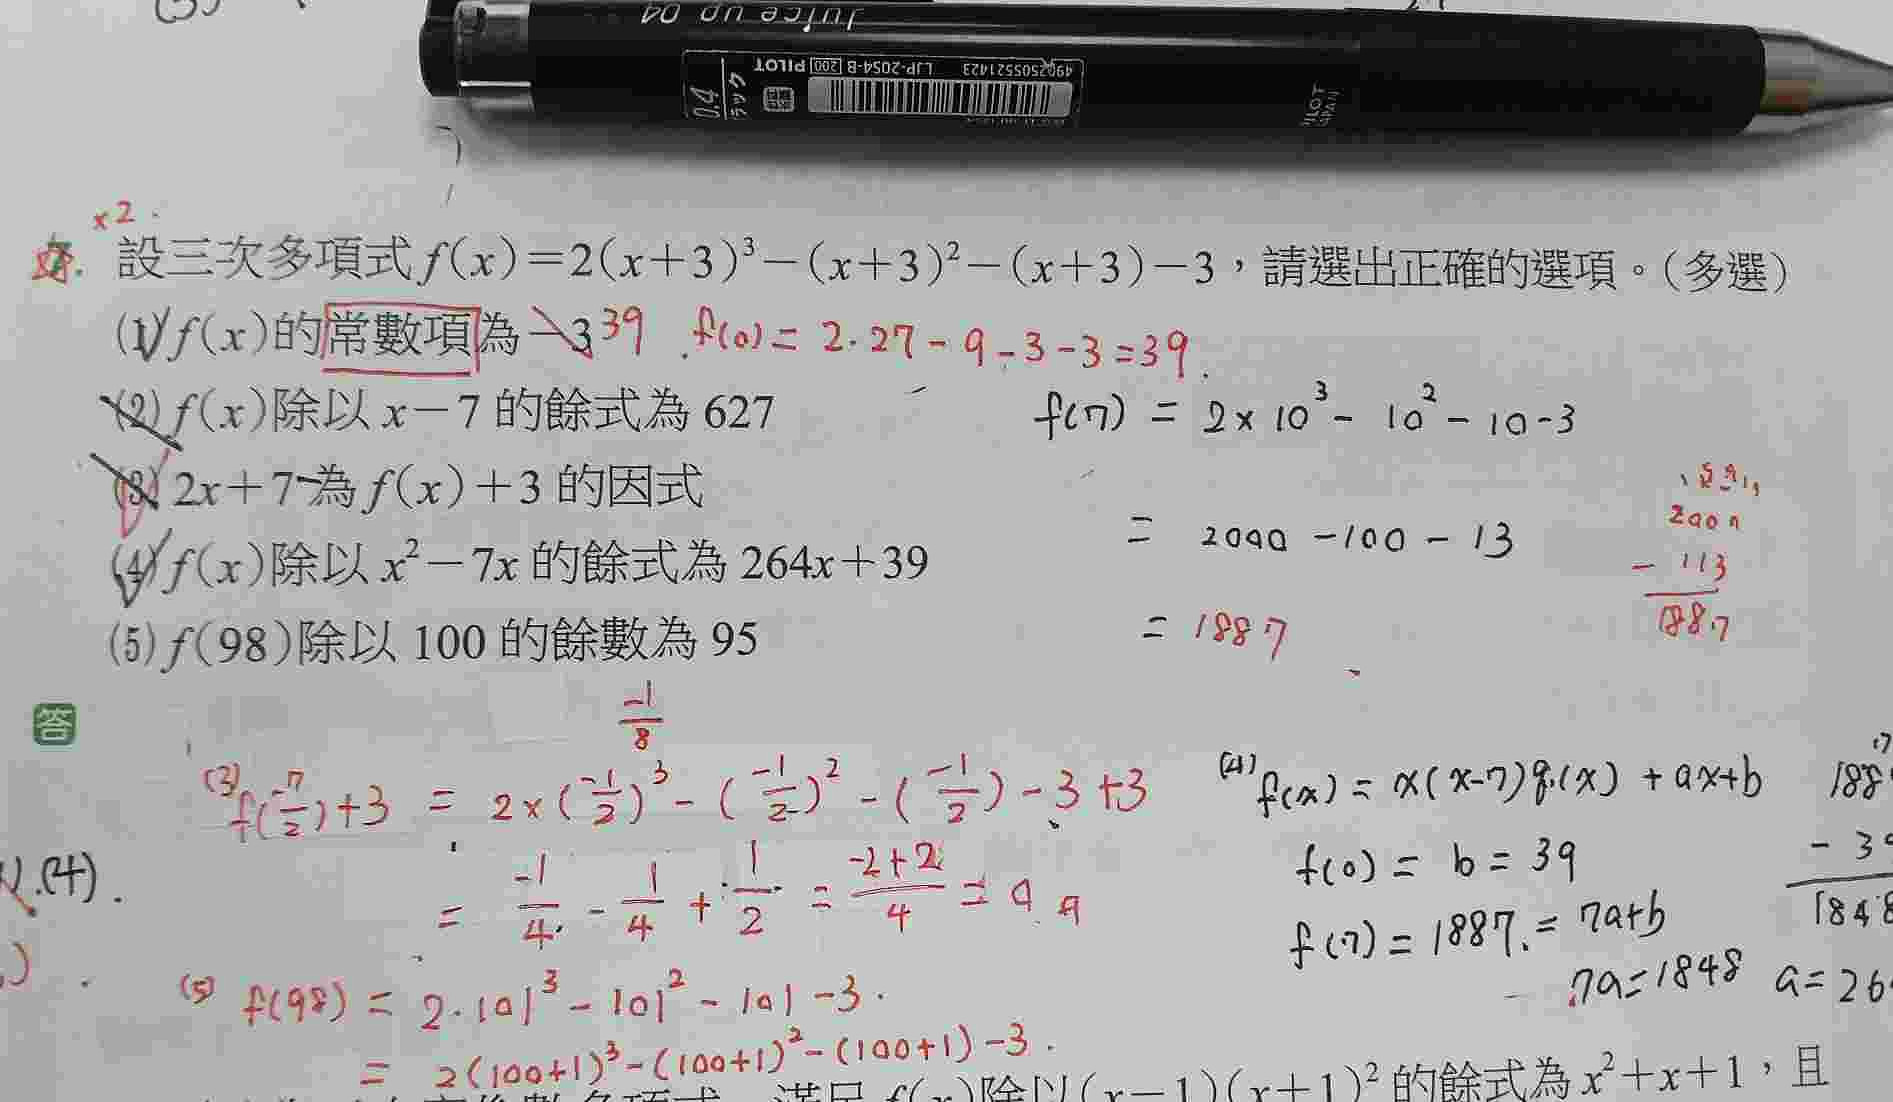 Juice up 04
0.4
ラック
PILOT 200 LJP-20S4-B 4902505521423
×2.
設三次多項式f(x)=2(x+3)³-(x+3)²-(x+3)-3,請選出正確的選項。(多選)
(1)f(x)的常數項為-3 39 f(0)=2·27-9-3-3=39.
(2)f(x)除以x-7的餘式為627 f(7)=2×10³-10²-10-3
(3)2x+7為f(x)+3的因式
= 2000-100-13
2000
-113
1887
(4)f(x)除以x²-7x的餘式為264x+39
= 1887
(5)f(98)除以100的餘數為95
答
-1/8
(3) f(-7/2)+3 = 2×(-1/2)³-(-1/2)²-(-1/2)-3+3
= -1/4-1/4+1/2=-2+2/4=0
(4) f(x)=x(x-7)q(x)+ax+b
f(0)=b=39
f(7)=1887=7a+b
7a=1848 a=26
188
-3
1848
(4).
(5) f(98)=2·101³-101²-101-3.
= 2(100+1)³-(100+1)²-(100+1)-3.
除以(x-1)(x+1)²的餘式為x²+x+1,且